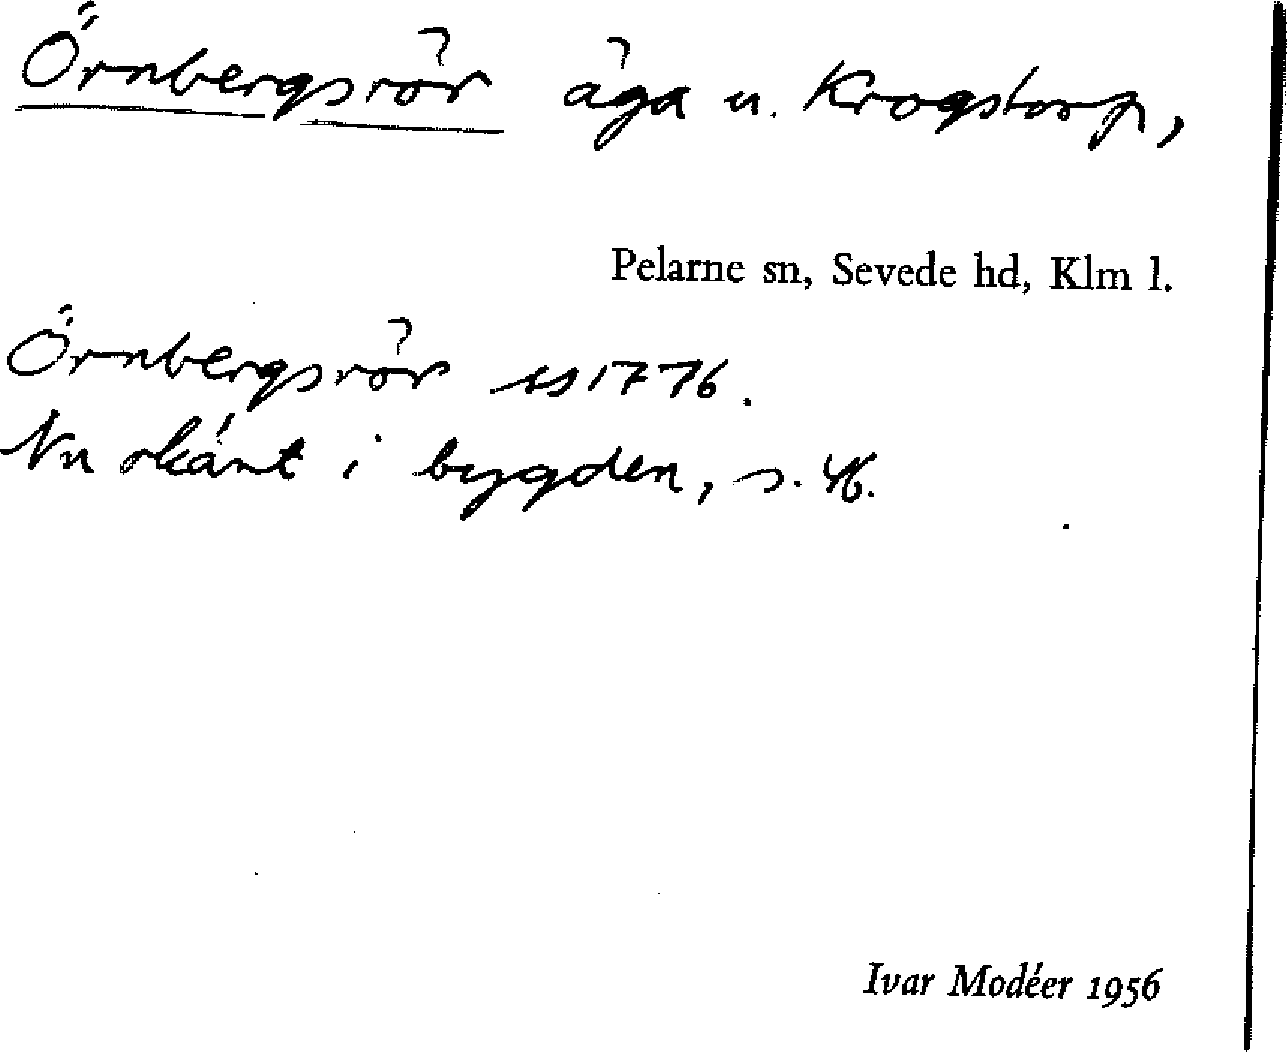 Örnbergsrör äga u. Krogstorp,
Pelarne sn, Sevede hd, Klm l.
Örnbergsrör 1776.
Nu okänt i bygden, s.
Ivar Modéer 1956